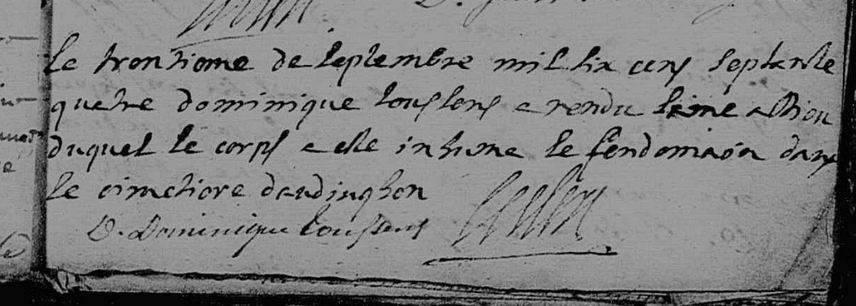 le trentieme de septembre mil six cens septante
quatre dominique coustens a rendu l'ame a Dieu
duquel le corps a este inhume le lendemain dans
le cimetiere
D. Dominique coustens